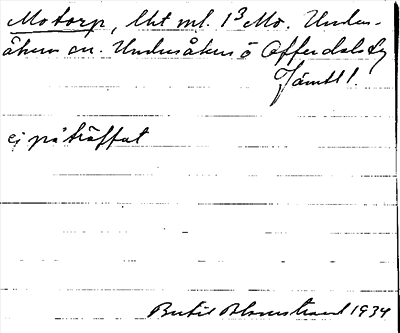 Motorp, lht nl. 1³ Mo. Unders-
åkers sn. Undersåkers o Offerdals tg
Jämtl.
ej påträffat
Bertil Blomstrand 1934